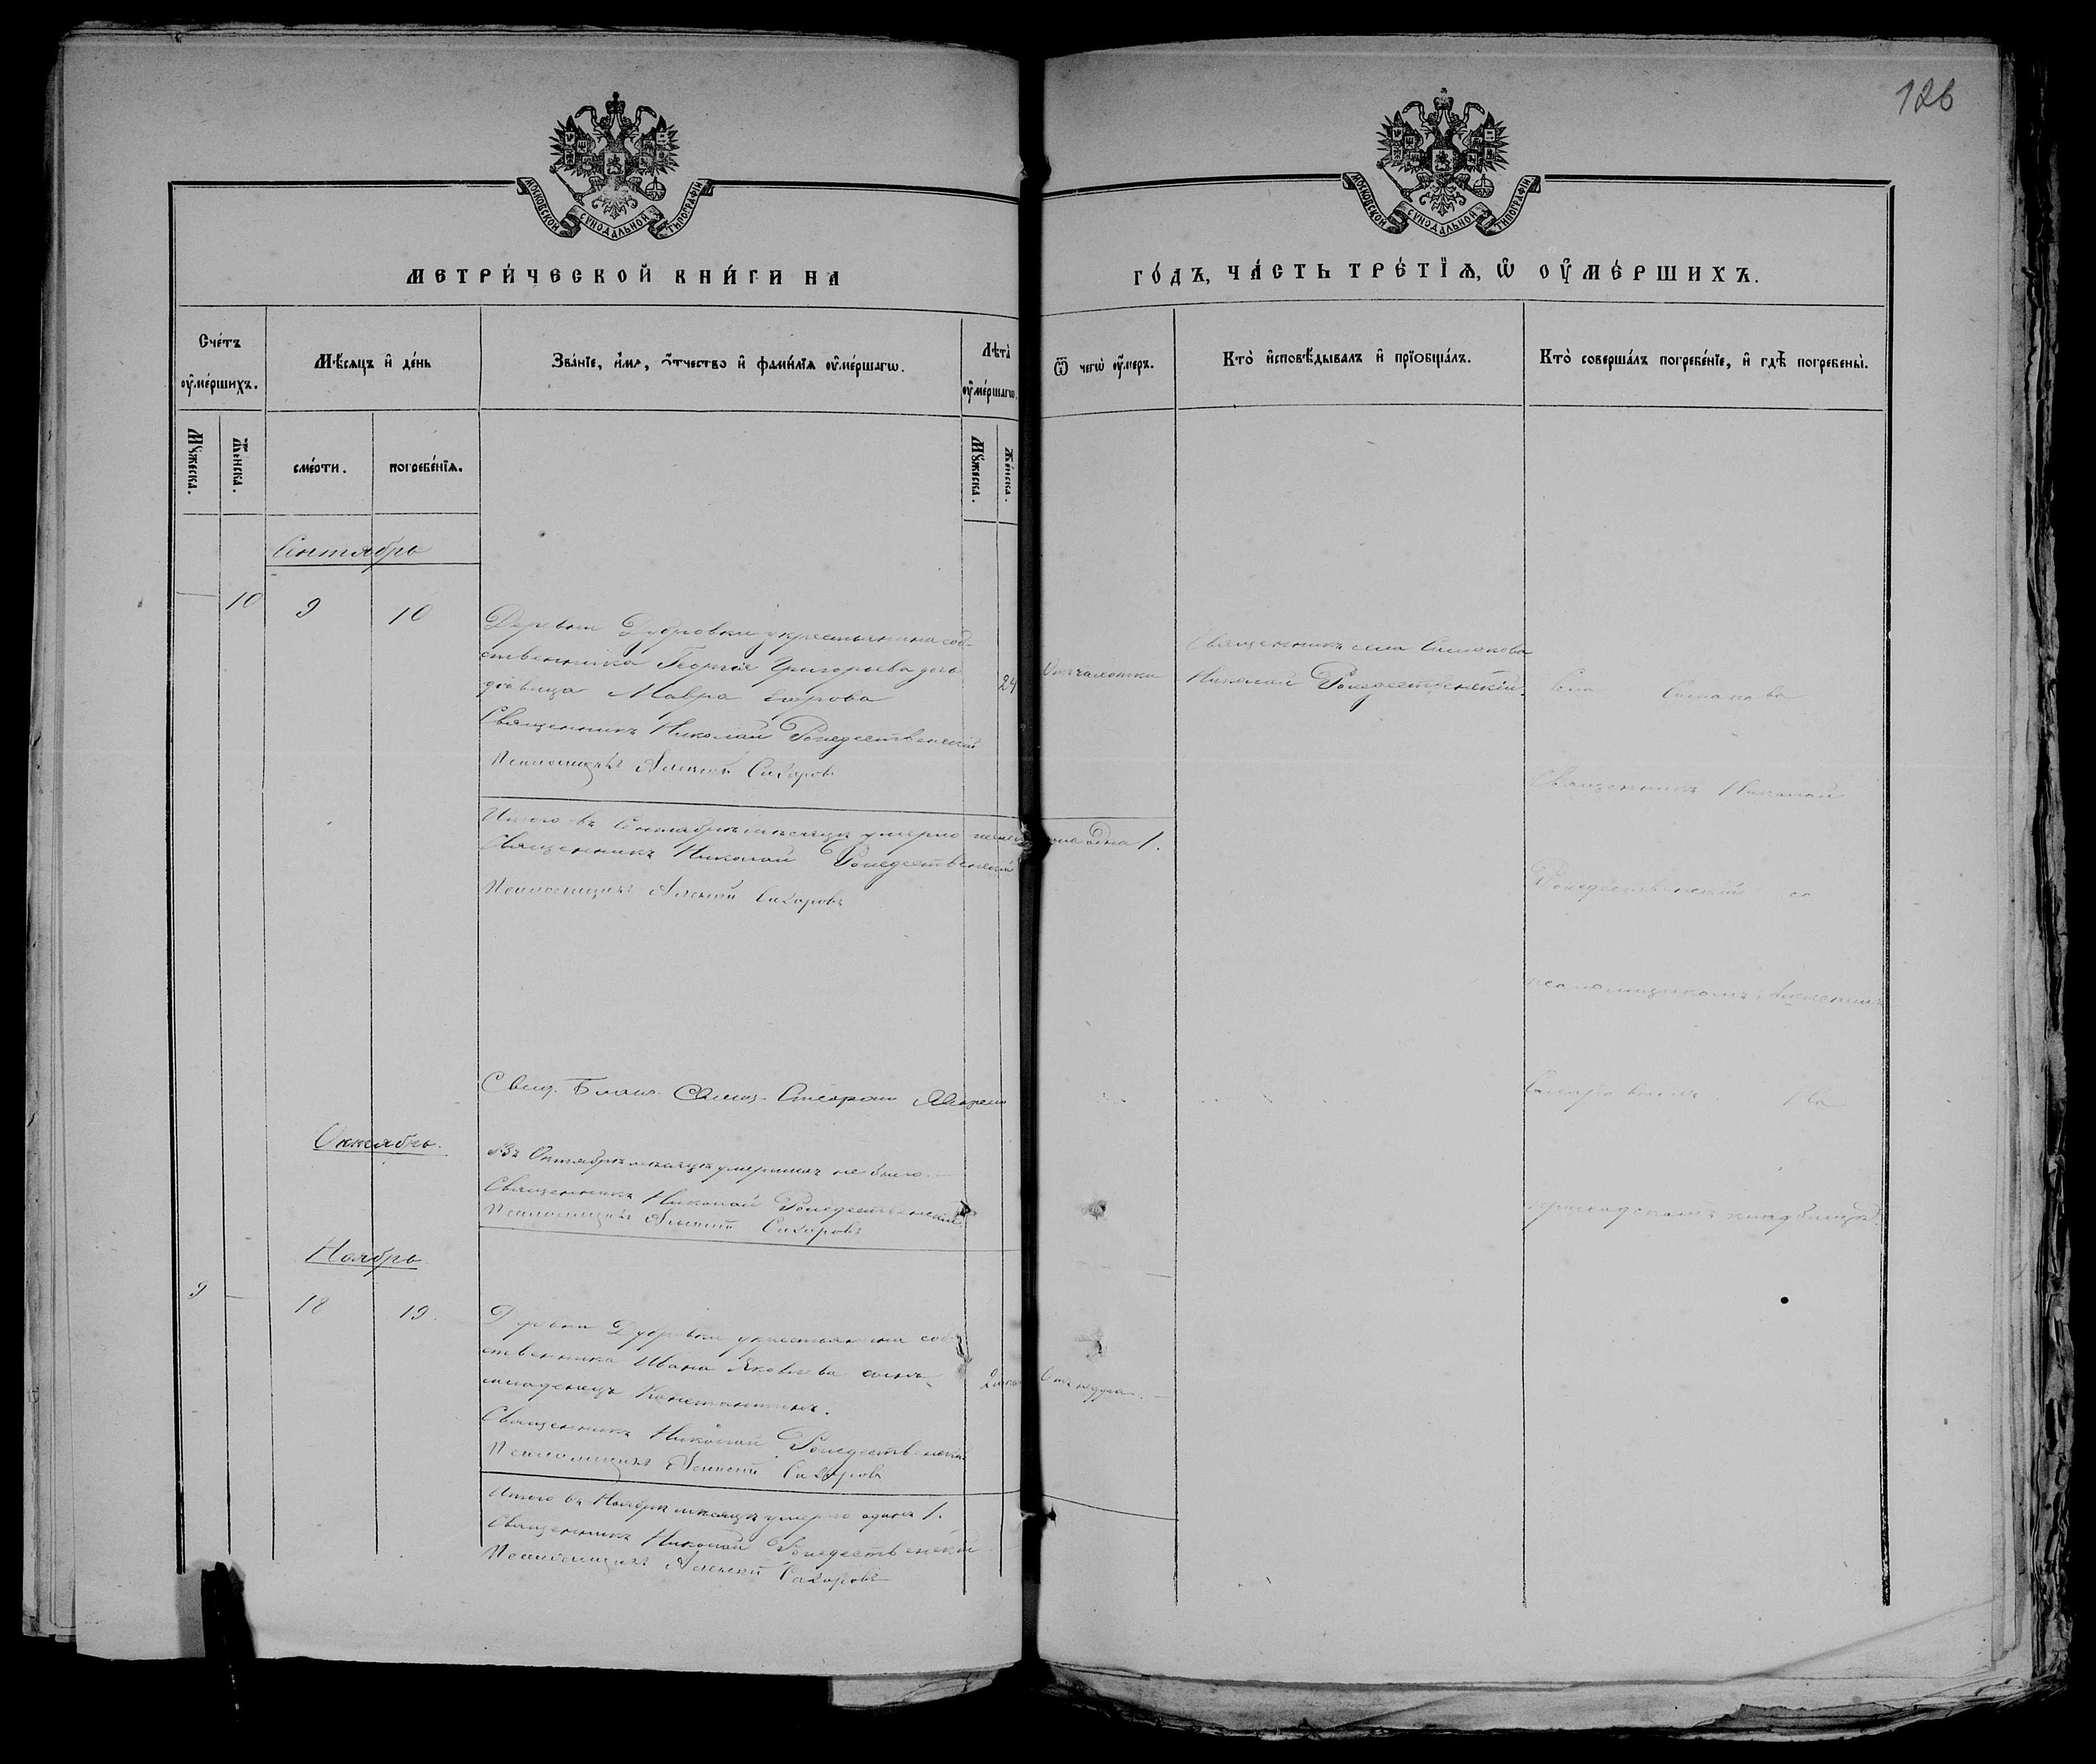 126
МОСКОВСКОЙ СѴНОДАЛЬНОЙ ТИПОГРАФІИ
МОСКОВСКОЙ СѴНОДАЛЬНОЙ ТИПОГРАФІИ
МЕТРИ́ЧЕСКОЙ КНИ́ГИ НА
ГО́ДЪ, ЧА́СТЬ ТРЕ́ТІѦ, Ѡ҆ ОУ҆МЕ́РШИХЪ.
Сче́тъ оу҆ме́ршихъ.
Мѣ́сяцъ и҆ де́нь
Зва́ніе, и҆́мѧ, ѻ҆́тчество и҆ фами́лїѧ оу҆ме́ршагѡ.
Лѣта̀ оу҆ме́ршагѡ.
Ѿ чегѡ̀ оу҆́меръ.
Кто̀ и҆сповѣ́дывалъ и҆ прїѡбща́лъ.
Кто̀ соверша́лъ погребе́нїе, и҆ гдѣ̀ погребены̀.
Мꙋ́жеска.
Же́нска.
сме́рти.
погребе́нїѧ.
Мꙋ́жеска.
Же́нска.
Сентябрь
10 9 10
Деревни Дубровки у крестьянина соб-
ственника Георгія Григорьева дочь
девица Мавра
Священникъ Николай Рождественскій
Псаломщикъ Алексѣй Сахаровъ
24
От чахотки
Священникъ села Симакова
Николай Рождественскій
Села Симакова
Священникъ Николай
Рождественскій со
псаломщикомъ Алексѣемъ
Сахаровымъ на
приходскомъ кладбищѣ
Итого въ Сентябрѣ мѣсяцѣ умерло одна 1.
Священникъ Николай Рождественскій
Псаломщикъ Алексѣй Сахаровъ
Октябрь.
Въ Октябрѣ мѣсяцѣ умершихъ не было.
Священникъ Николай Рождественскій
Псаломщикъ Алексѣй Сахаровъ
Ноябрь
9 18 19.
Деревни Дубровки у крестьянина соб-
ственника Ивана Яковлева сынъ
младенецъ Константинъ.
Священникъ Николай Рождественскій
Псаломщикъ Алексѣй Сахаровъ
Итого въ Ноябрѣ мѣсяцѣ умерло одинъ 1.
Священникъ Николай Рождественскій
Псаломщикъ Алексѣй Сахаровъ